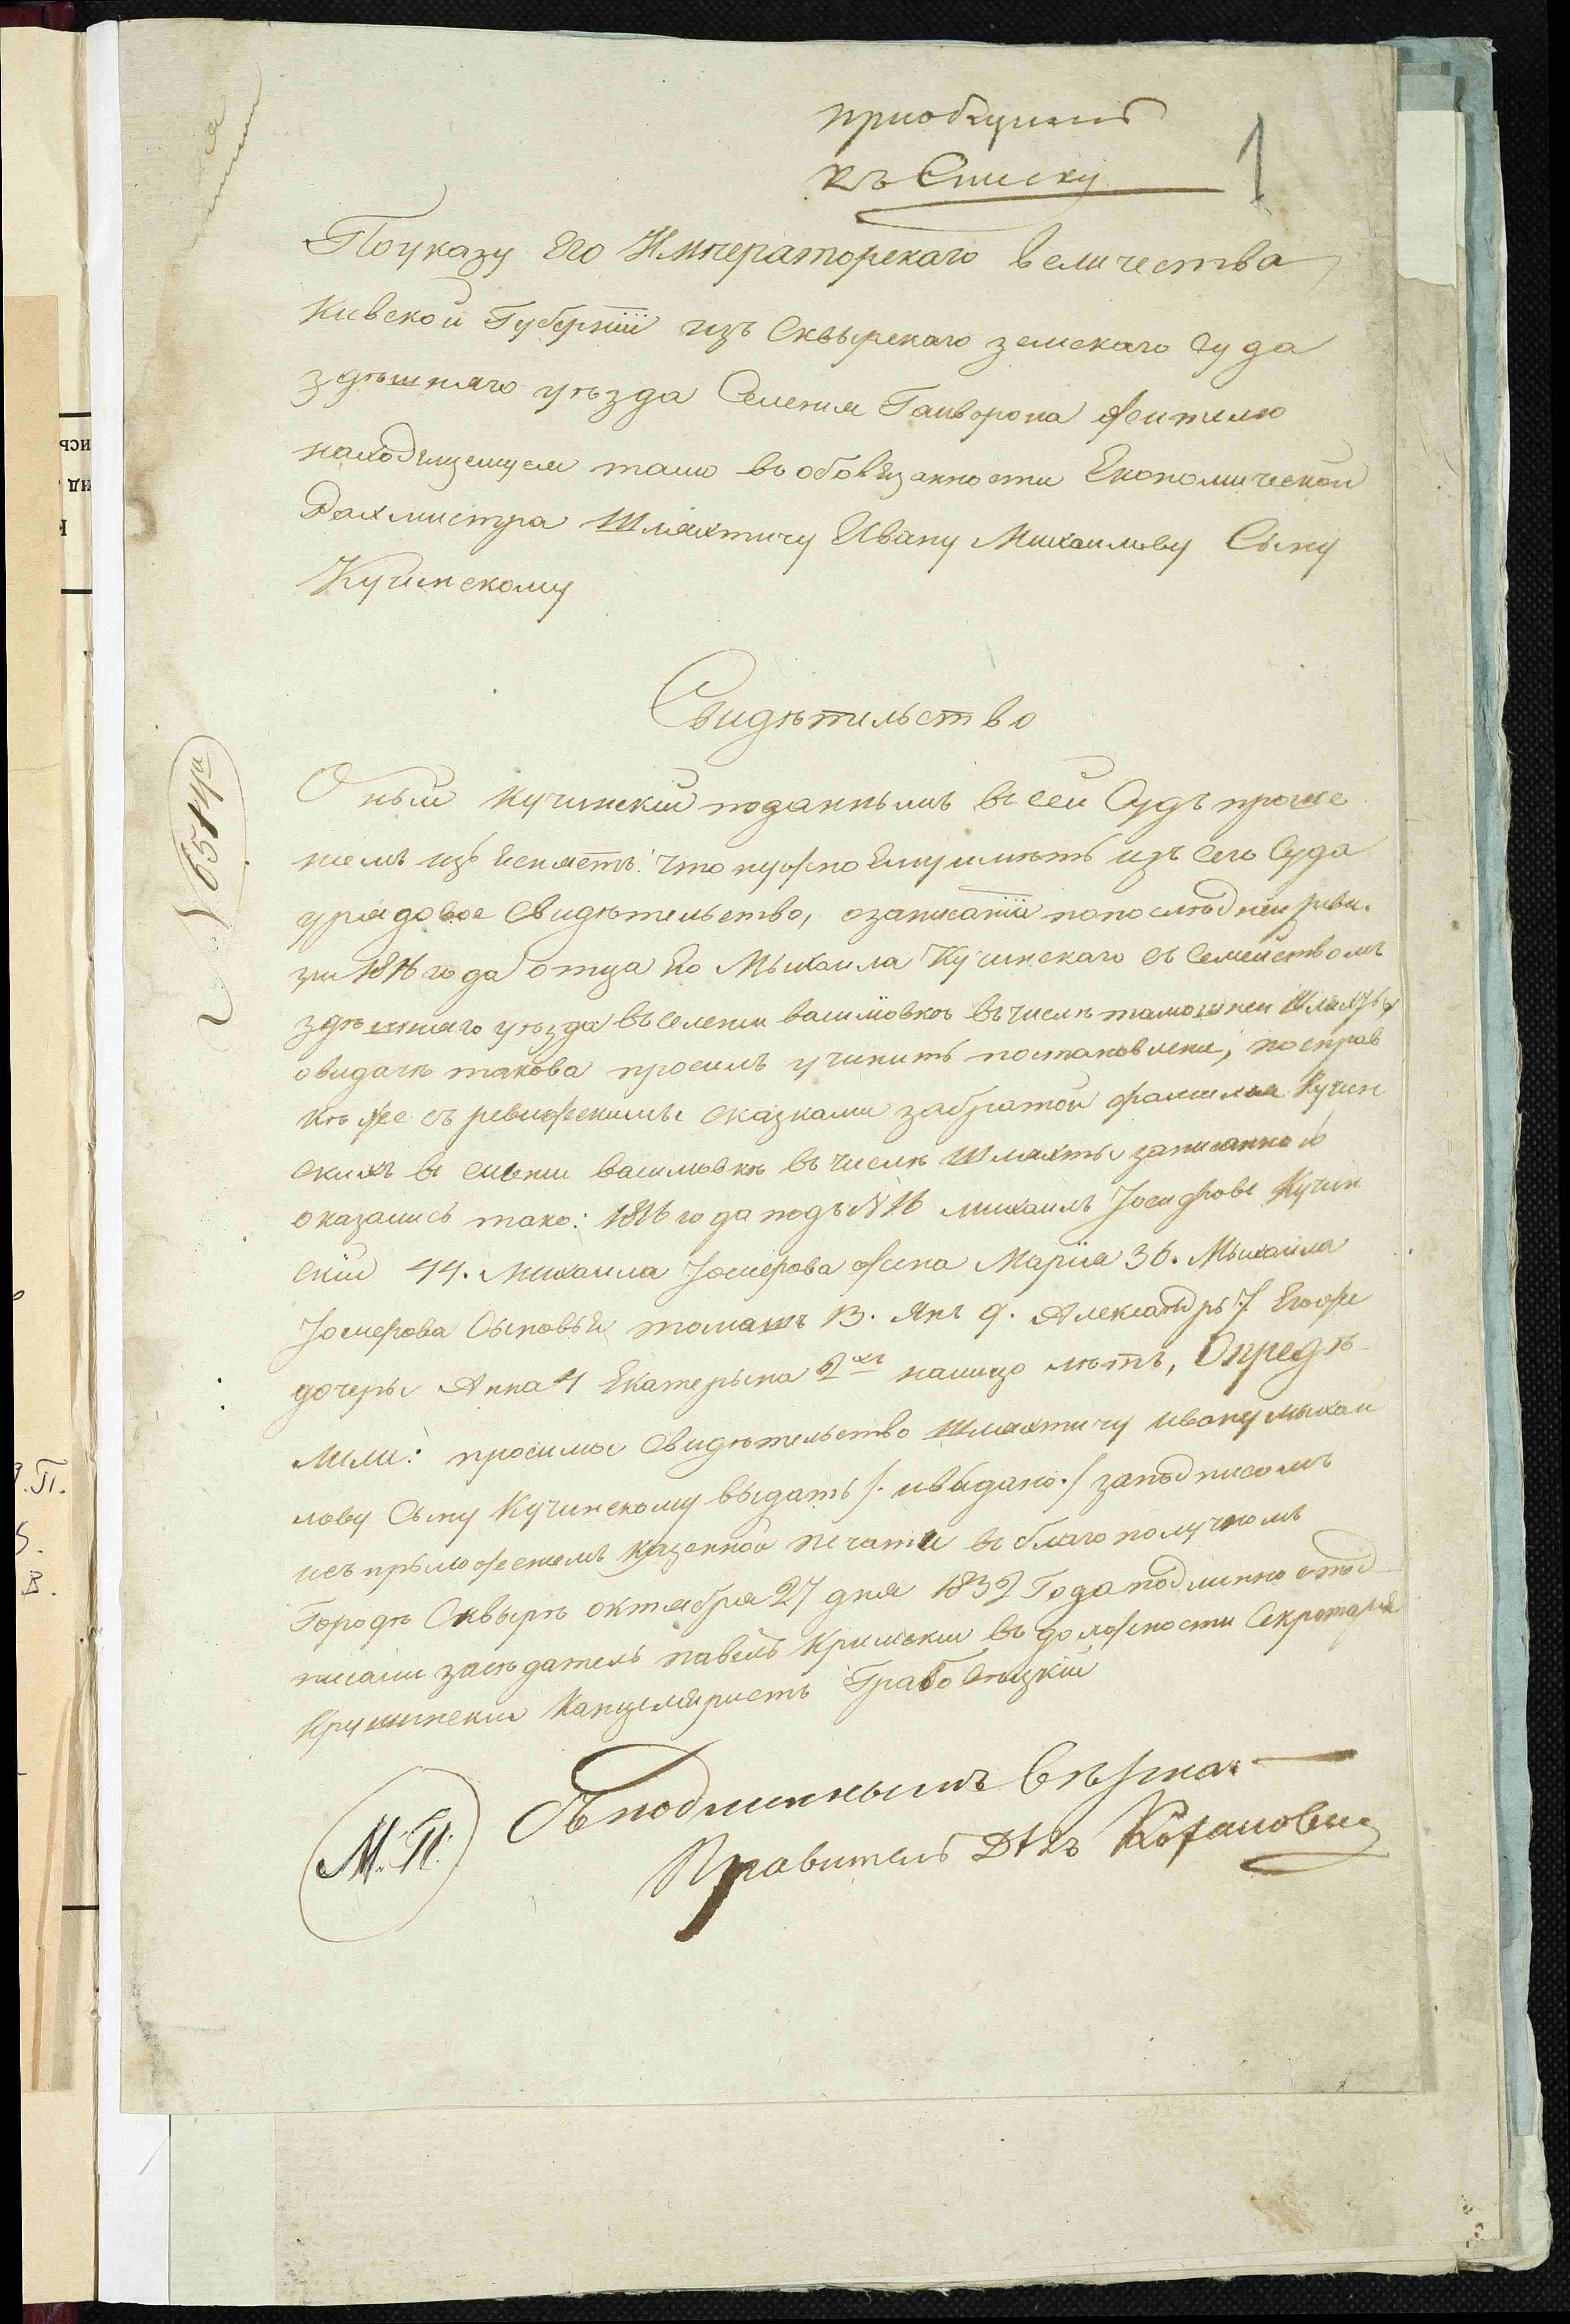 приобщить
къ Списку
1
По указу Его Императорскаго Величества
Киевской Губерніи изъ Сквырскаго земскаго Суда
здешняго уезда Селения Гайворона жителю
находящемуся тамо въ обовязанности Економической
Рахмистра Шляхтичу Ивану Михаилову Сыну
Кучинскому
Свидѣтельство
Оный Кучинский поданнымъ въ сей Судъ проше
ниемъ изъясняетъ: что нужно Ему иметь изъ Сего Суда
урядовое Свидѣтельство, о записаніи по последней реви
зии 1816 года отца Его Мыхаила Кучинскаго съ Семействомъ
здѣшняго уезда въ селении Васильовкѣ въ числѣ тамошней Шляхты,
о видачѣ такова просилъ учинить постановление, по справ
кѣ же съ ревизскимы сказками забратой фамилия Кучин
скихъ въ Селении Васильовкѣ въ числѣ Шляхты записанной
оказались тако: 1816 года подъ N 16 михаилъ Іосифовъ Кучин
скій 44. Михаила Іосифова жена Маріа 36. Мыхаила
Іосифова Сыновья томашъ 13. Янъ 9. Александръ 7 Его же
дочеры Анна 4 Екатерына 2ухъ налицо летъ, Опредѣ
лили: просимое Свидѣтельство Шляхтичу Ивану Мыхаи
лову Сыну Кучинскому выдать /: и выдано :/ за подписомъ
и съ прыложениемъ казенной печати въ благополучномъ
Городѣ Сквырѣ октября 27 дня 1832 Года подлинно подъ
писали заседатель павелъ в должности Секретаря
Крушинский Канцеляристъ
М.П.
Съ подлиннымъ вѣрно:
Правитель Дѣлъ